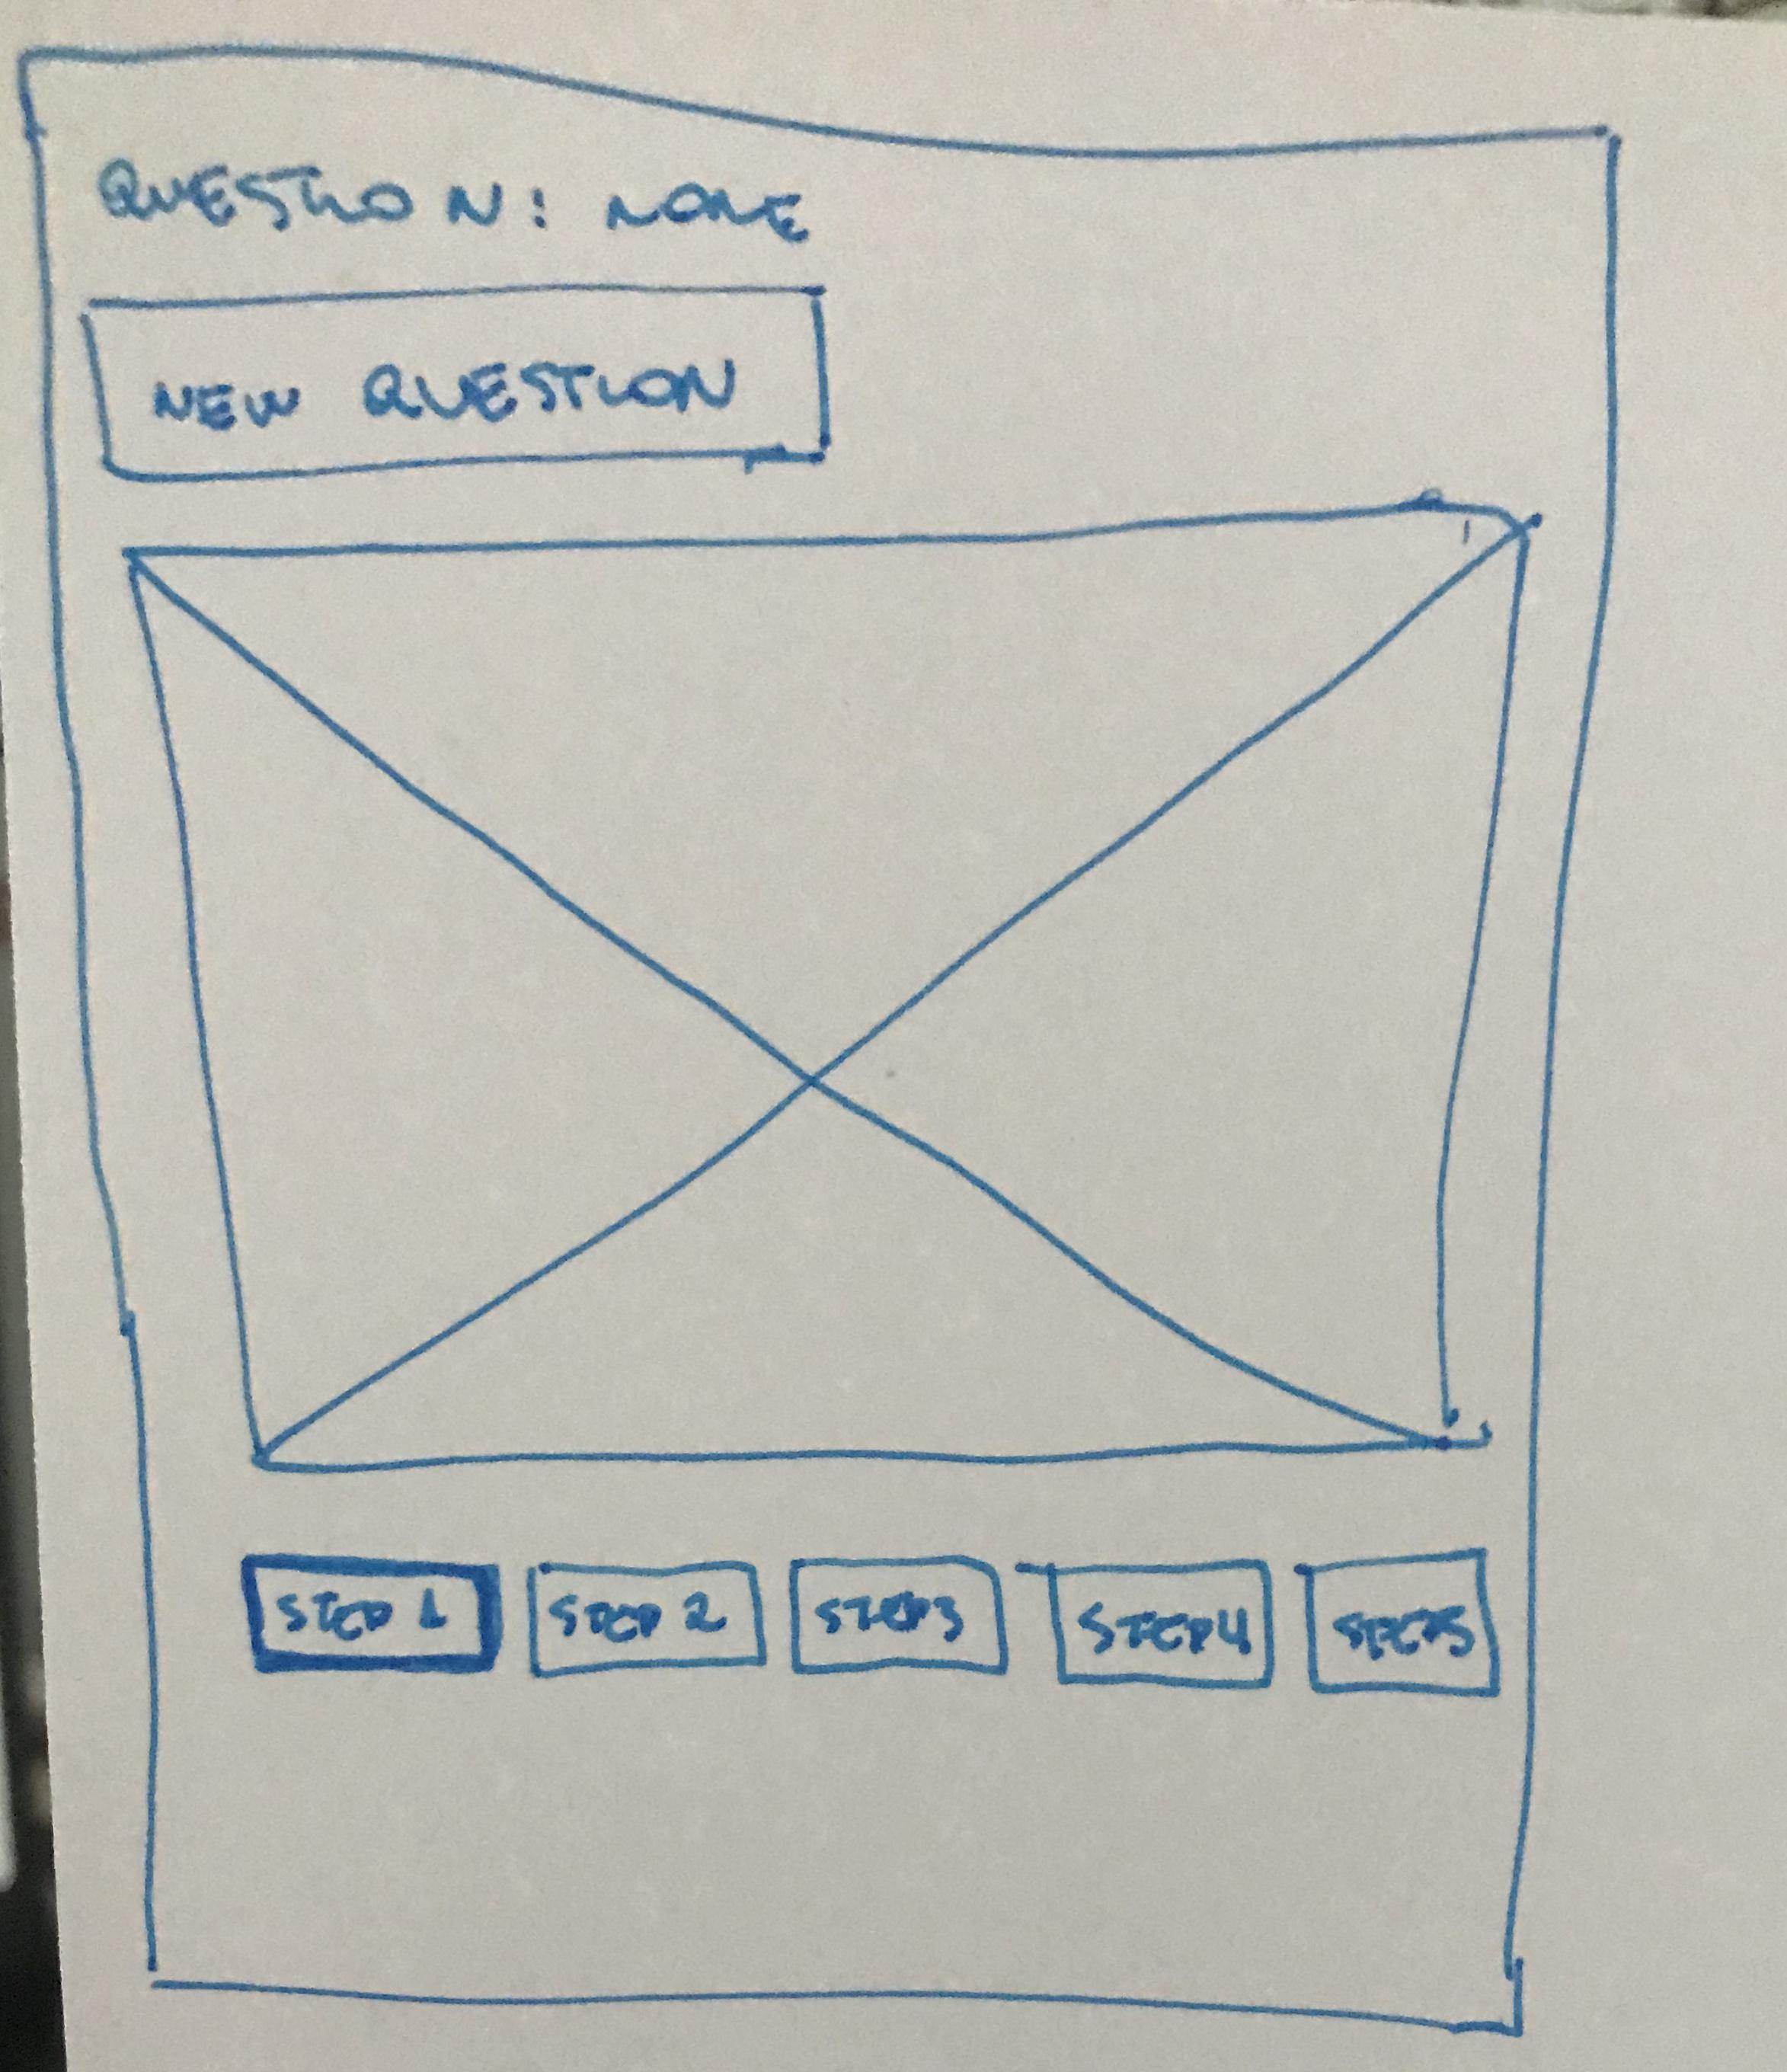 QUESTION: NONE
NEW QUESTION
STEP 1 STEP 2 STEP3 STEP4 STEP5